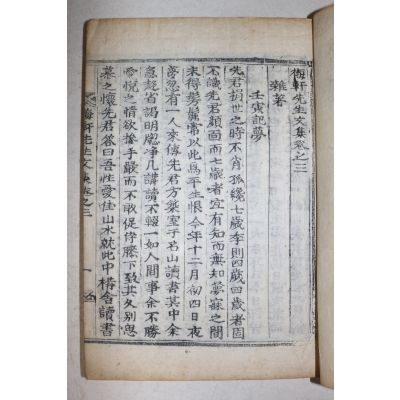 梅軒先生文集卷之三
雜著
壬寅記夢
先君捐世之時不肖孤纔七歲季則四歲四歲者固
不識先君顏面而七歲者宜有知而無知夢寐之間
未得髣髴常以此爲平生恨今年十二月初四日夜
夢忽有一人來傳先君方築室于名山讀書其中余
急趍省謁明窓淨几講讀不輕一如人間事余不勝
愛悅之情欲攀手嚴而不敢促侍膝下致其久別思
慕之懷先君答曰吾性愛佳山水就此中構舍讀書
梅軒先生文集卷之三
一